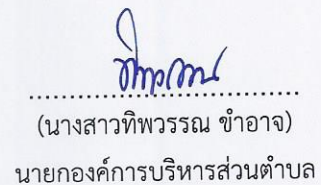 (นางสาวทิพวรรณ ขำอาจ)
นายกองค์การบริหารส่วนตำบล